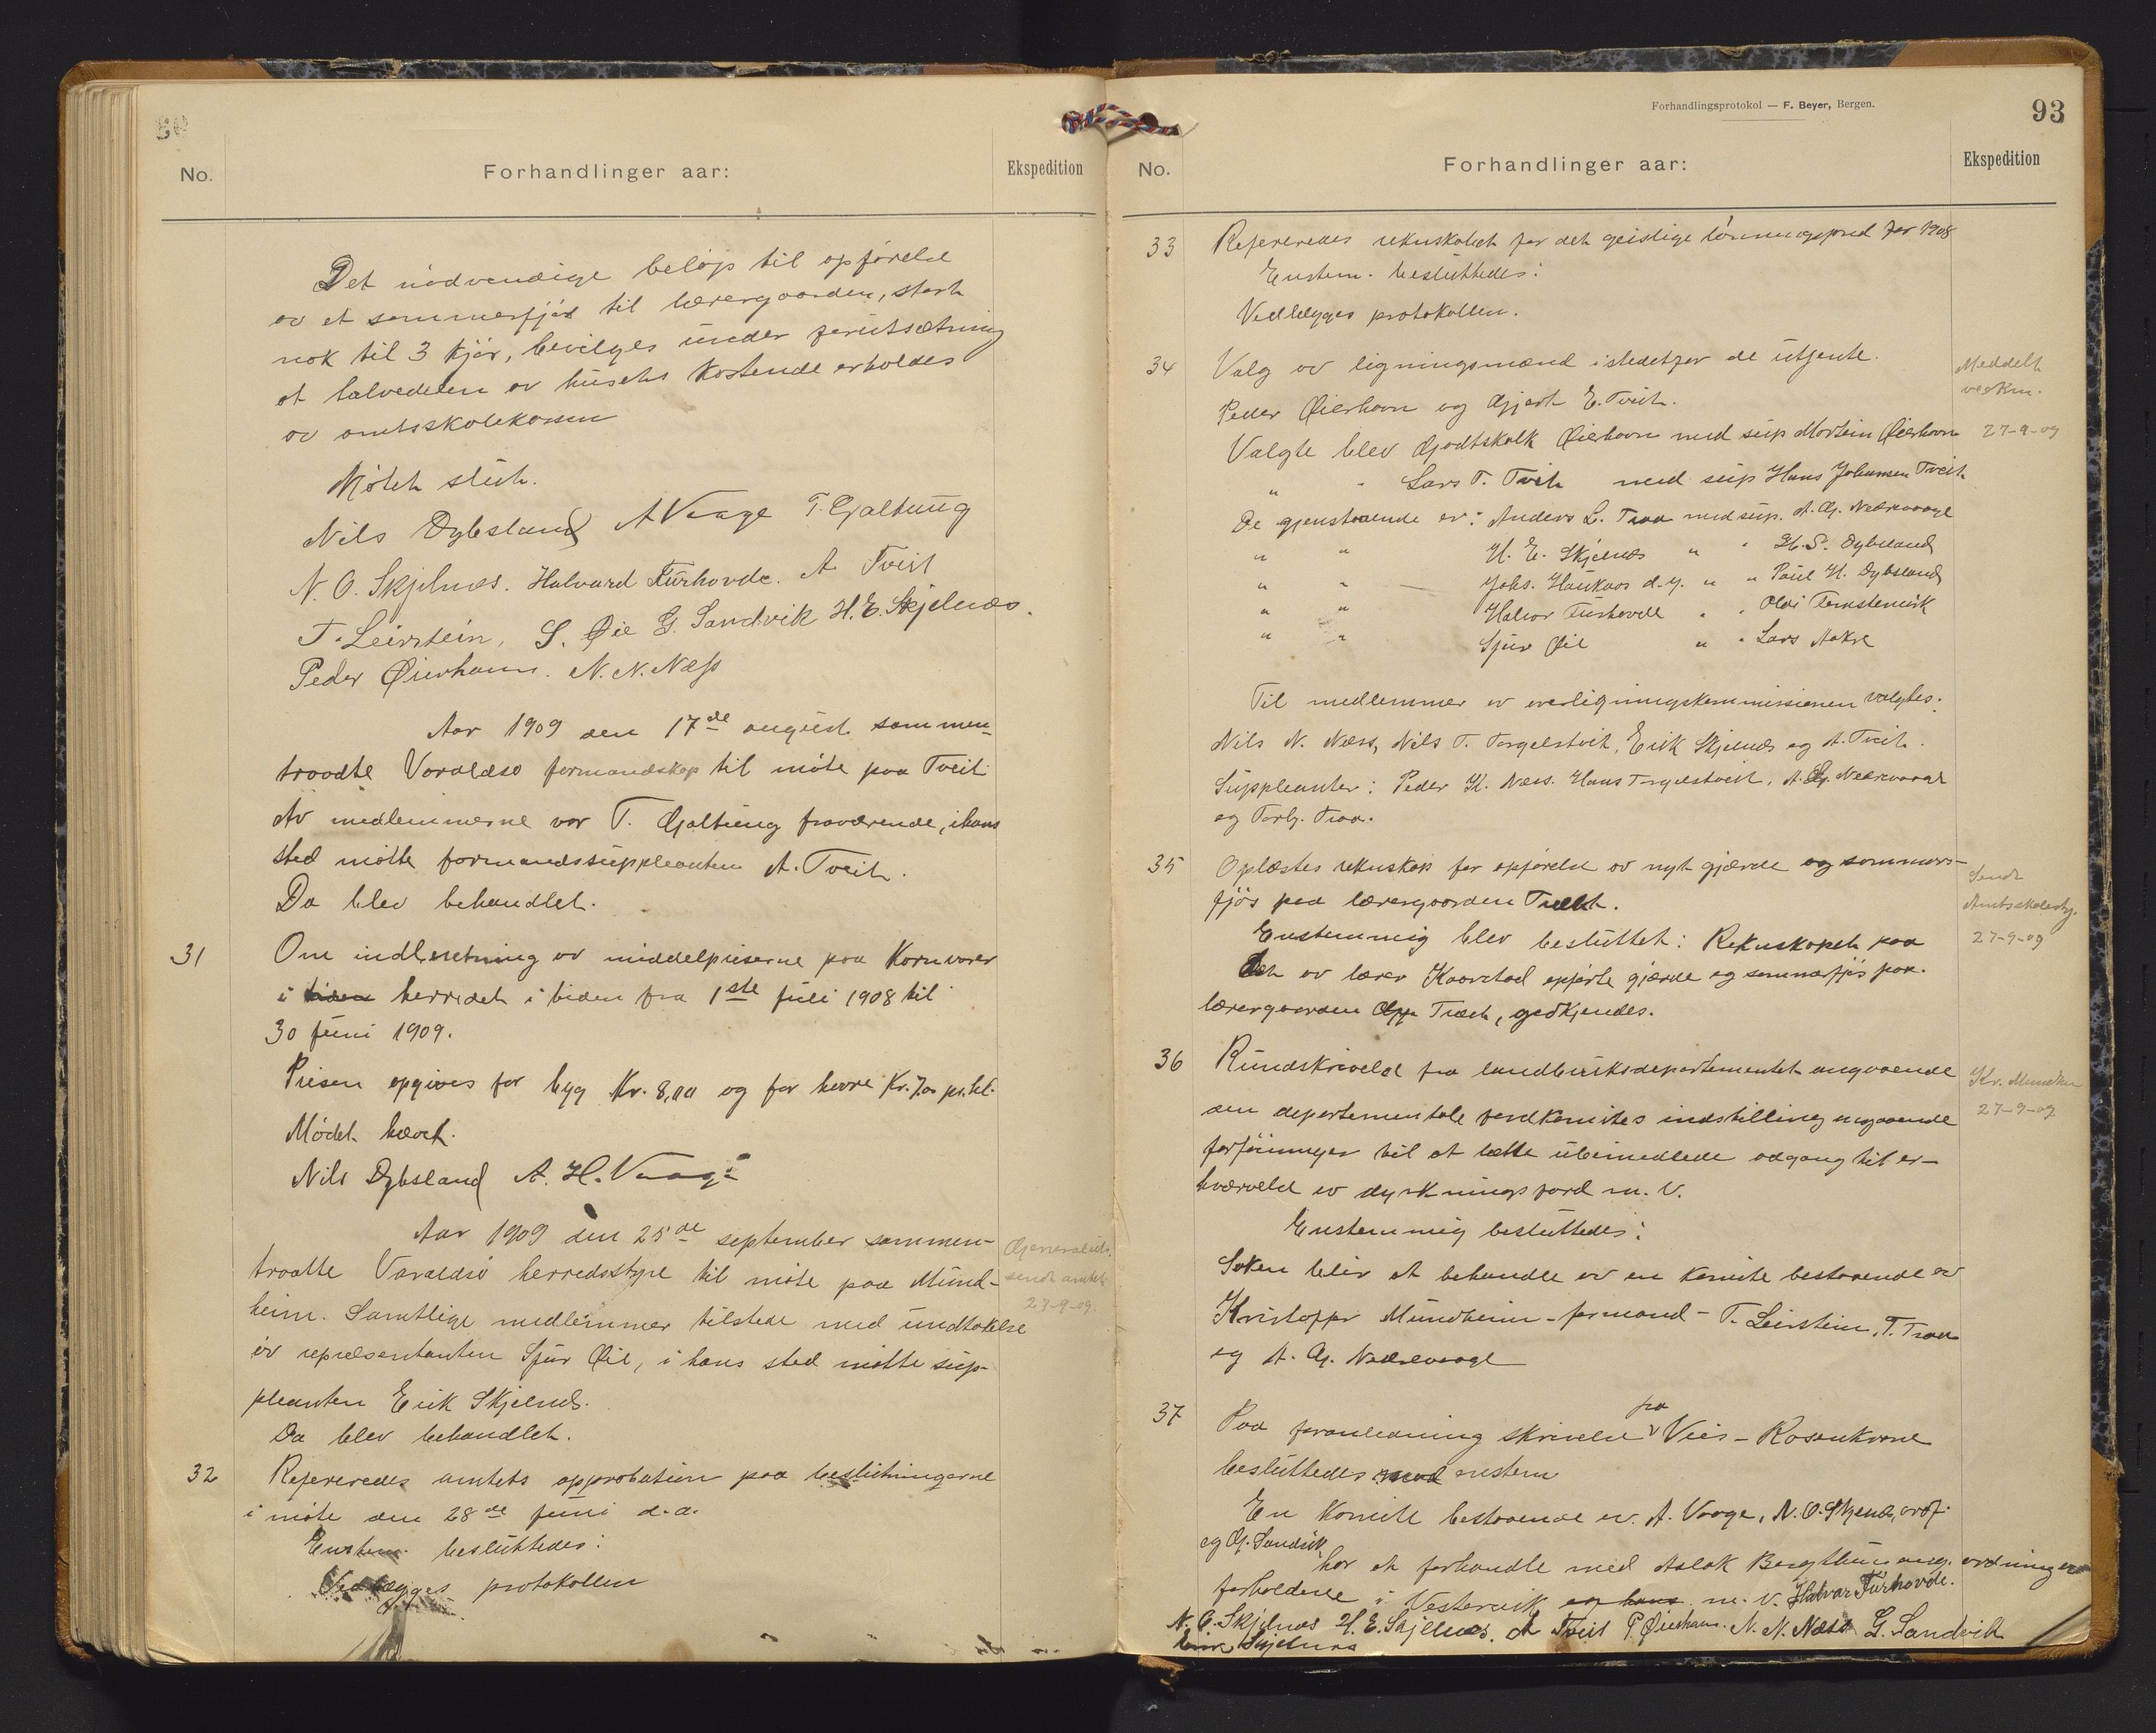 No.
Forhandlinger aar:
Ekspedition
Det nödvendige belöp til opförelse
av et sommerfjös til lærergaarden, stort
nok til 3 kjör, bevilges under forutsætning
at halvedelen av husets kostende erholdes
av amtsskolekassen
Mötet slut.
Nils Dybsland A Vaage T. Gjaltung
N. O. Skjelnæs. Halvard Furhovde. A Tveit
T. Leirstein, S. Øie G. Sandvik H. E. Skjelnæs.
Peder Øierhavn. N. N. Næss
Aar 1909 den 17de august sammen-
traadte Varaldsö formandskap til möte paa Tveit
Av medlemmerne var T. Gjaltung fraværende, i hans
sted mötte formandssuppleanten A. Tveit.
Da blev behandlet.
31
Om indberetning av middelpriserne paa Kornvarer
i tiden herredet i tiden fra 1ste juli 1908 til
30 juni 1909.
Prisen opgives for byg Kr. 8,00 og for havre Kr. 7,00 pr. hl.
Mödet hævet.
Nils Dybsland A. H. Vaage
Aar 1909 den 25de september sammen-
traatte Varaldsö herredsstyre til möte paa Mund-
heim. Samtlige medlemmer tilstede med undtakelse
av repræsentanten Sjur Øie, i hans sted mötte sup-
pleanten Erik Skjelnæs.
Da blev behandlet.
sendt amtet
27-9-09.
32
Refereredes amtets approbation paa beslutningerne
i möte den 28de juni d.a.
Enstem. besluttedes:
Vedlægges protokollen
Forhandlingsprotokol — F. Beyer, Bergen.
93
No.
Forhandlinger aar:
Ekspedition
33
Refereredes reknskabet for det geistlige lönningsfond for 1908
Enstem. besluttedes:
Vedlægges protokollen.
34
Valg av ligningsmænd istedetfor de uttjente.
Peder Øierhavn og Gjert E. Tveit.
Valgte blev Godtskalk Øierhavn med sup Mortein Øierhavn
" " Lars T. Tveit med sup Hans Johannesen Tveit
De gjenstaaende er: Anders L. Traa med sup. A. G. Nedrevaage
" " H. E. Skjelnæs " " H. S. Dybsland
" " Johs. Haukaas d.y. " " Paul H. Dybsland
" " Halvor Furhovde " " Olai
" " Sjur Øie " " Lars Aakre
Meddelt
27-9-09
Til medlemmer av overligningskommissionen valgtes:
Nils N. Næss, Nils T. Torgelstveit, Erik Skjelnæs og A. Tveit.
Suppleanter: Peder K. Næss. Hans Torgelstveit. A. G. Nedrevaage
og Torb. Traa.
35
Oplæstes rekneskap for opförelse av nyt gjærde og sommer-
fjös paa lærergaarden Træet.
Enstemmig blev besluttet: Rekneskapet paa
det av lærer Kaarstad opförte gjærde og sommerfjös paa
lærergaarden Træet, godkjendes.
Sendt
Amtsskolesty.
27-9-09
36
Rundskrivelse fra landbruksdepartementet angaaende
den departementale jordkomites indstilling angaaende
forföininger til at lette ubemidlede adgang til er-
hvervelse av dyrkningsjord m. v.
Enstemmig besluttedes:
Saken blir at behandle av en komite bestaaende av
Kristoffer Mundheim - formand - T. Leirstein, T. Traa
og A. G. Nedrevaage
Kr. Mundheim
27-9-09
37
Paa foranledning skrivelse fra Veis-Rosenkrone
besluttedes med enstem
En komite bestaaende av. A. Vaage, N. O. Skjelnæs, ordf.
og G. Sandvik har at forhandle med Aslak Bergthun ang. ordningen
forholdene i Vestervik og hans m. v. Halvar Furhovde.
N. O. Skjelnæs H. E. Skjelnæs. A Tveit P. Øierhavn. N. N. Næss G. Sandvik
Erik Skjelnæs